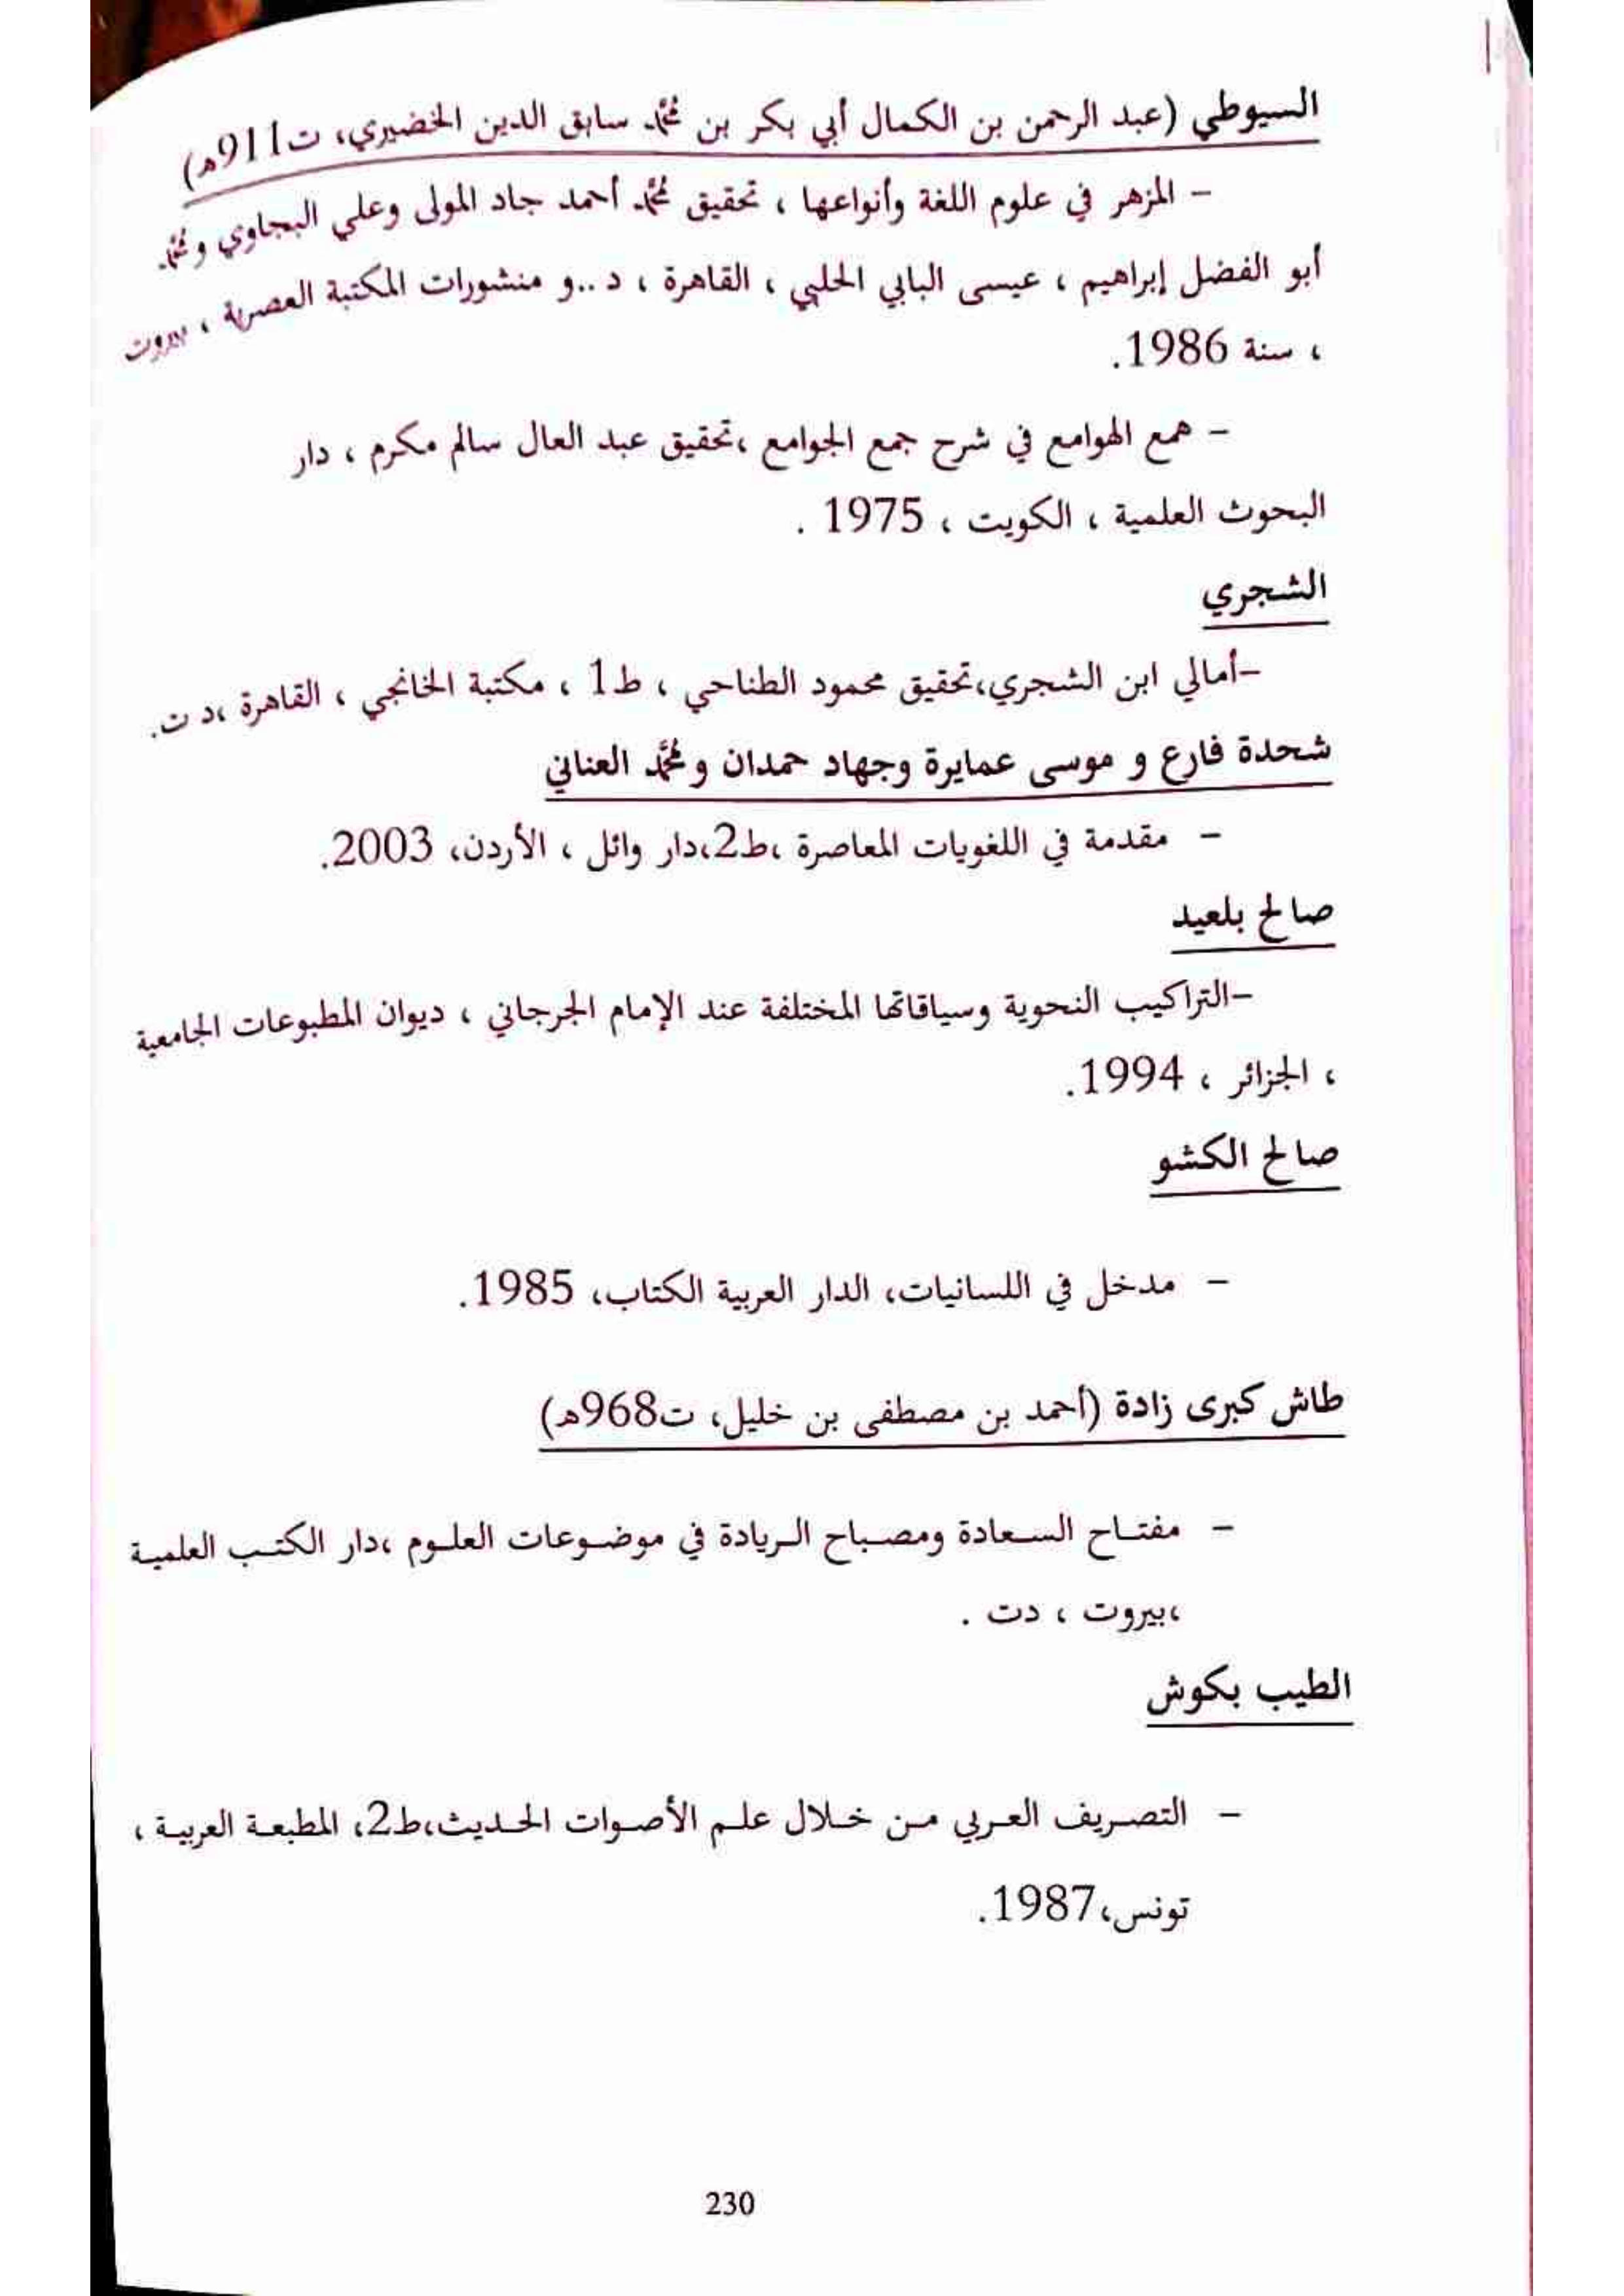 السيوطي (عبد الرحمن بن الكمال أبي بكر بن محمد سابق الدين الخضيري، ت911هـ)
- المزهر في علوم اللغة وأنواعها ، تحقيق محمد أحمد جاد المولى وعلي البجاوي ومحمد
أبو الفضل إبراهيم ، عيسى البابي الحلبي ، القاهرة ، د ..و منشورات المكتبة العصرية ، بيروت
، سنة 1986.
- همع الهوامع في شرح جمع الجوامع ،تحقيق عبد العال سالم مكرم ، دار
البحوث العلمية ، الكويت ، 1975 .
الشجري
-أمالي ابن الشجري،تحقيق محمود الطناحي ، ط1 ، مكتبة الخانجي ، القاهرة ،د ت.
شحدة فارع و موسى عمايرة وجهاد حمدان ومحمد العناني
- مقدمة في اللغويات المعاصرة ،ط2،دار وائل ، الأردن، 2003.
صالح بلعيد
-التراكيب النحوية وسياقاتها المختلفة عند الإمام الجرجاني ، ديوان المطبوعات الجامعية
، الجزائر ، 1994.
صالح الكشو
- مدخل في اللسانيات، الدار العربية الكتاب، 1985.
طاش كبرى زادة (أحمد بن مصطفى بن خليل، ت968هـ)
- مفتاح السعادة ومصباح الريادة في موضوعات العلوم ،دار الكتب العلمية
،بيروت ، دت .
الطيب بكوش
- التصريف العربي من خلال علم الأصوات الحديث،ط2، المطبعة العربية ،
تونس،1987.
230